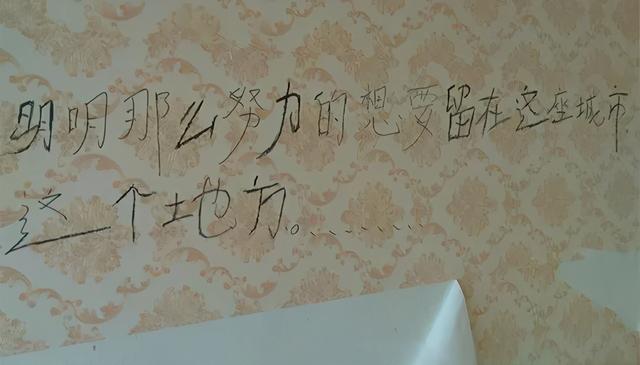 明明那么努力的想要留在这座城市
这个地方。........